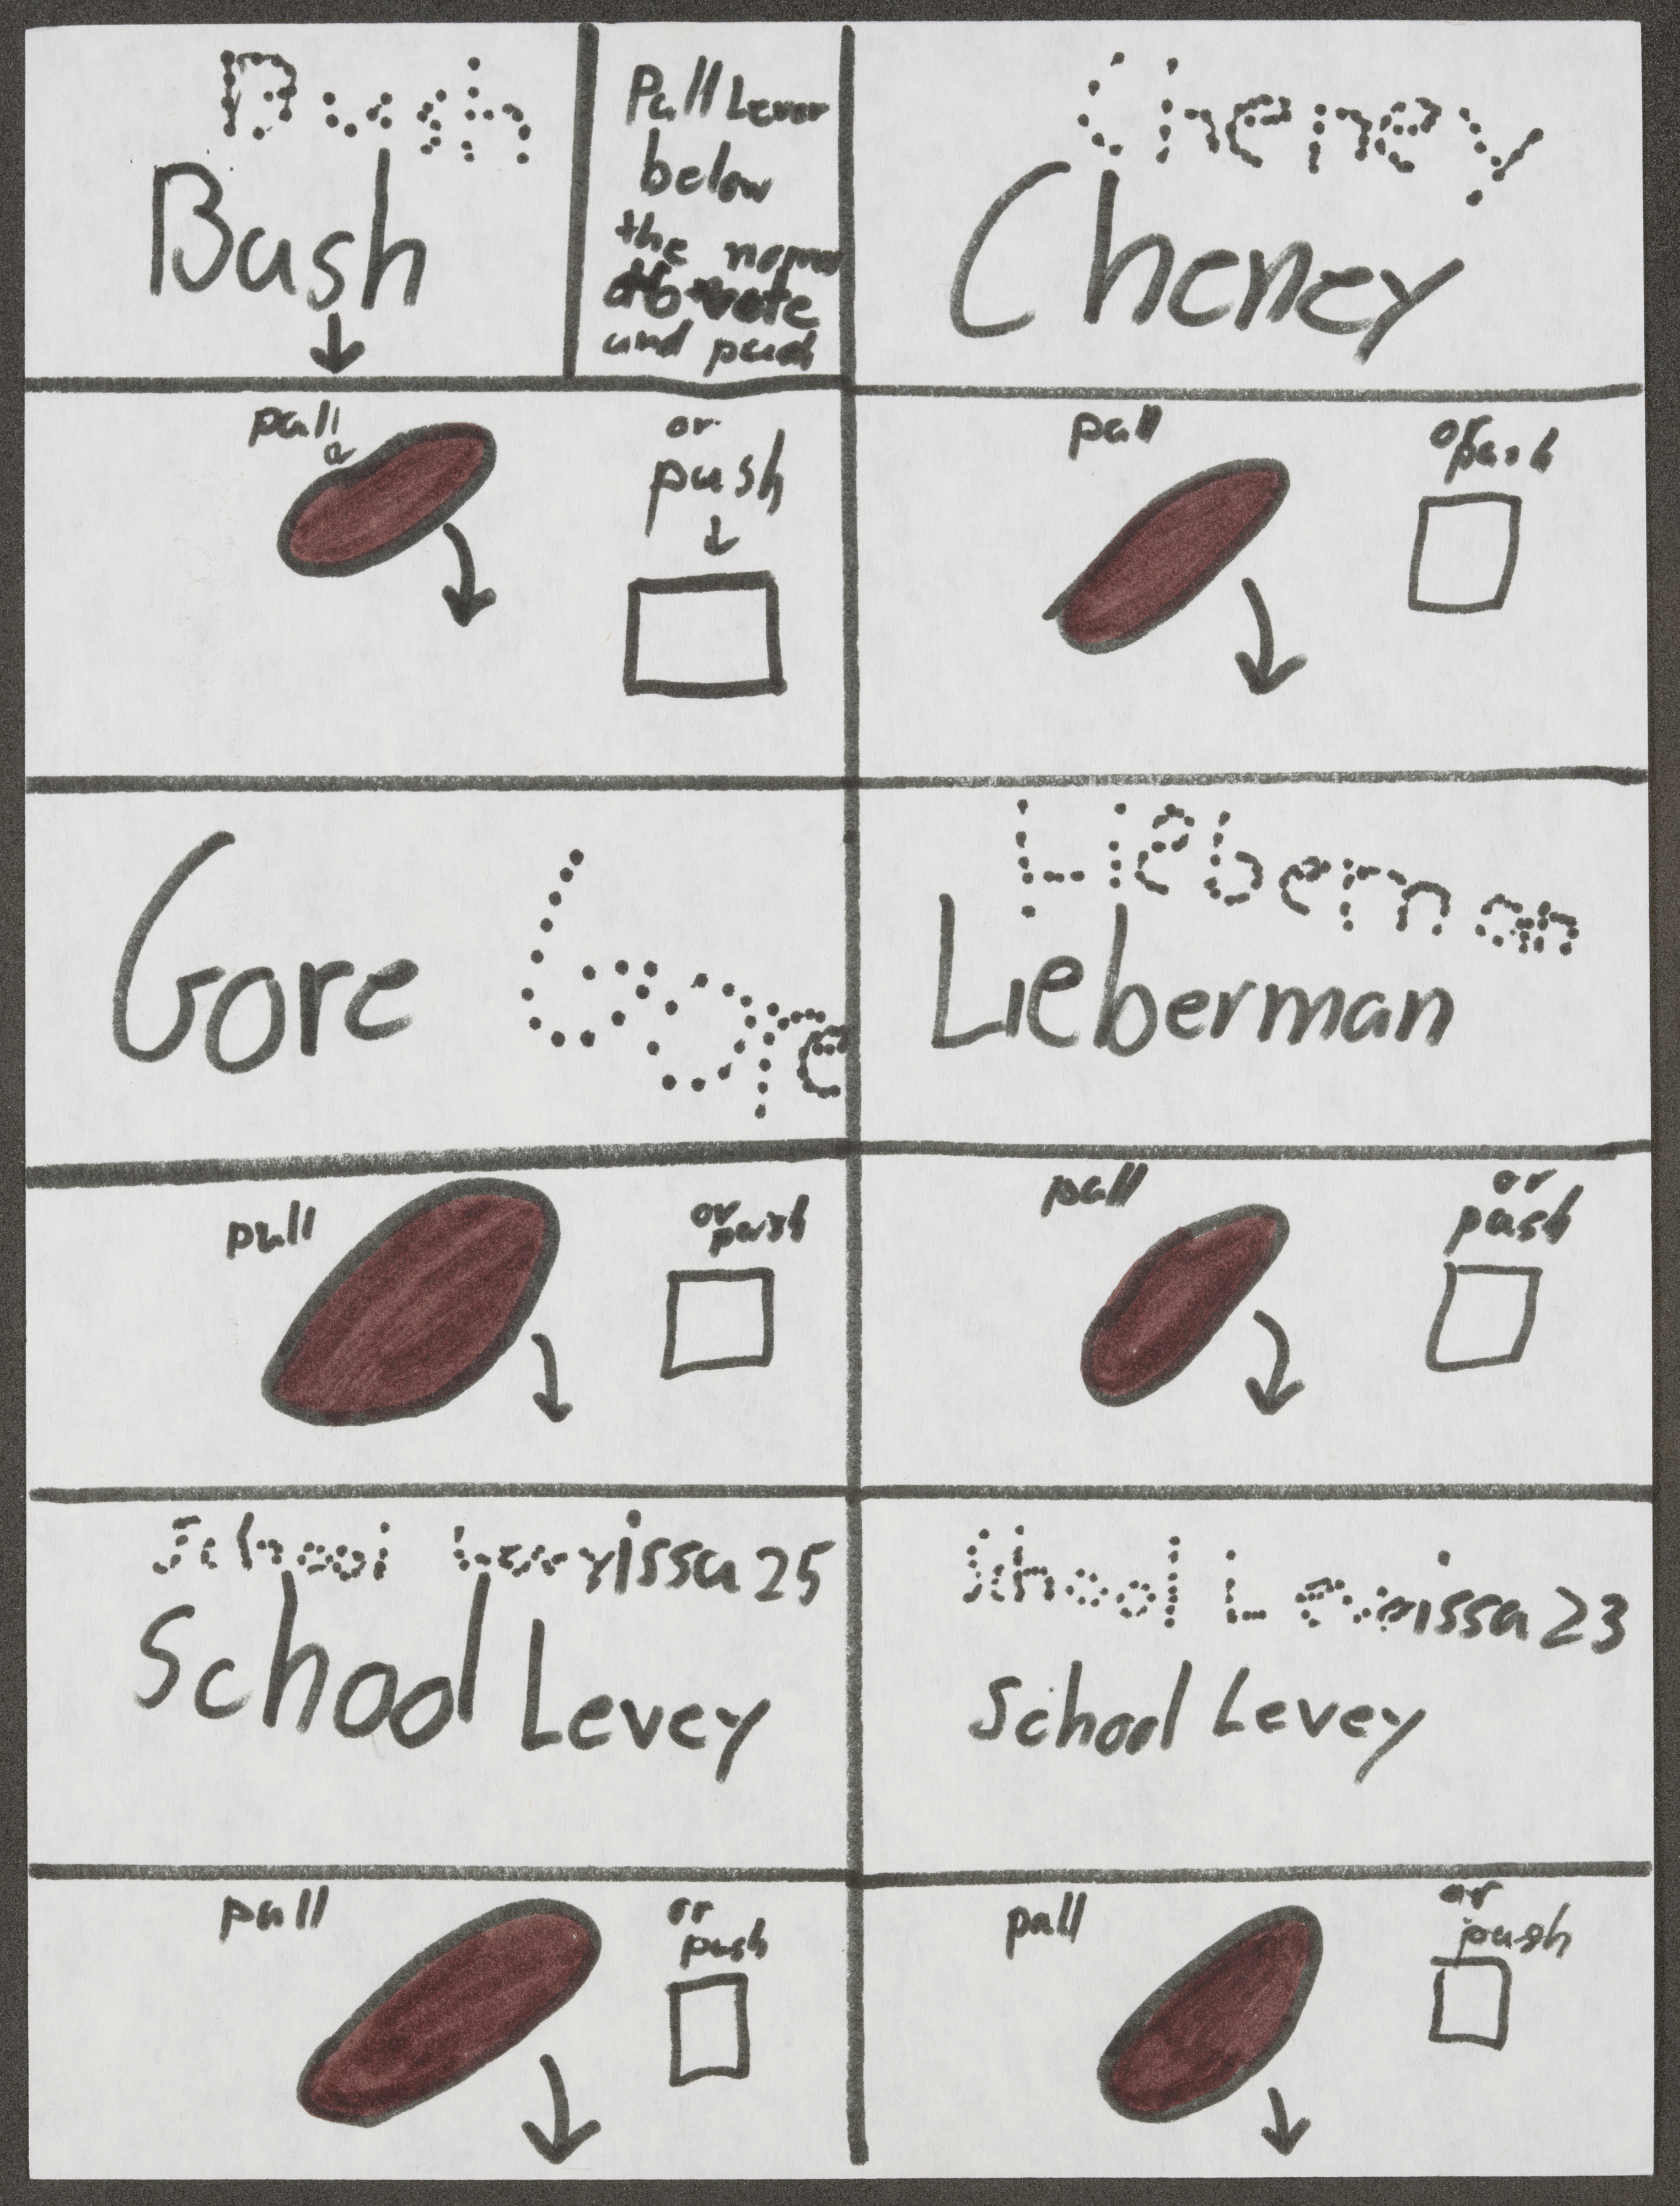 Bush
Bush
Pull Lever
below
the name
to vote
and push
Cheney
Cheney
pull
or
push
pull
or push
Gore Gore
Lieberman
Lieberman
pull
or
push
pull
or
push
School Lev rissa 25
School Levey
School Lev rissa 23
School Levey
pull
or
push
pull
or
push